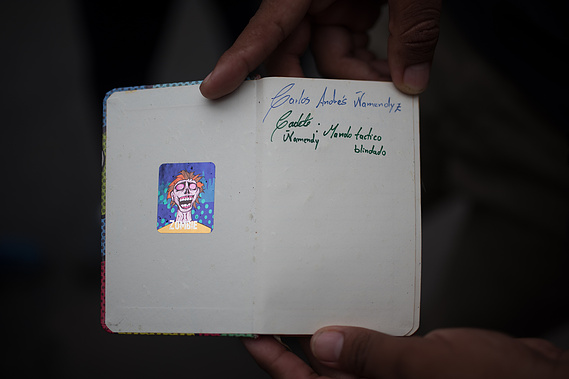 ZOMBIE
Carlos Andrés Ñamendyz
Cadete.
Ñamendy Mando tactico
blindado